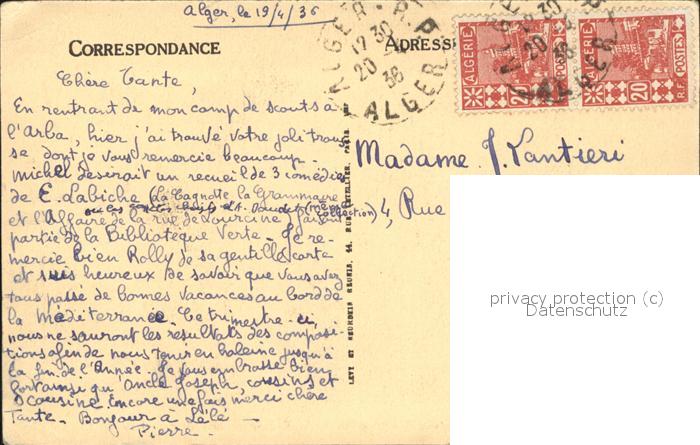 Alger, le 19/4/36
CORRESPONDANCE
ADRESSE
ALGER - R.P
12 30
20
36
ALGER
ALGERIE
20
POSTES
R.F.
ALGERIE
POSTES
20
R.F.
Chère Tante,
En rentrant de mon camp de scouts à
l'Arba, hier j'ai trouvé votre joli trous
se dont je vous remercie beaucoup.
Michel désirait un recueil de 3 comédies
de E. Labiche (La Cagnotte, la Grammaire
ou les
(même collection)
et l'Affaire de la rue de Lourcine faisant
partie de la Bibliotèque Verte - Je re-
mercie bien Rolly de sa gentille carte
et suis heureux de savoir que vous avez
tous passé de bonnes vacances au bord de
la Méditerranée. Ce trimestre-ci,
nous ne sauront les résultats des composi-
tions afin de nous tenir en haleine jusqu'à
la fin de l'Année. Je vous embrasse bien
fort ainsi qu'Oncle Joseph, cousins et
cousine. Encore une fois merci chère
Tante. Bonjour à Lélé -
Pierre -
LEVY ET NEURDEIN REUNIS, 44, RUE LETELLIER, PARIS
Madame J. Vantieri
4, Rue
privacy protection (c)
Datenschutz